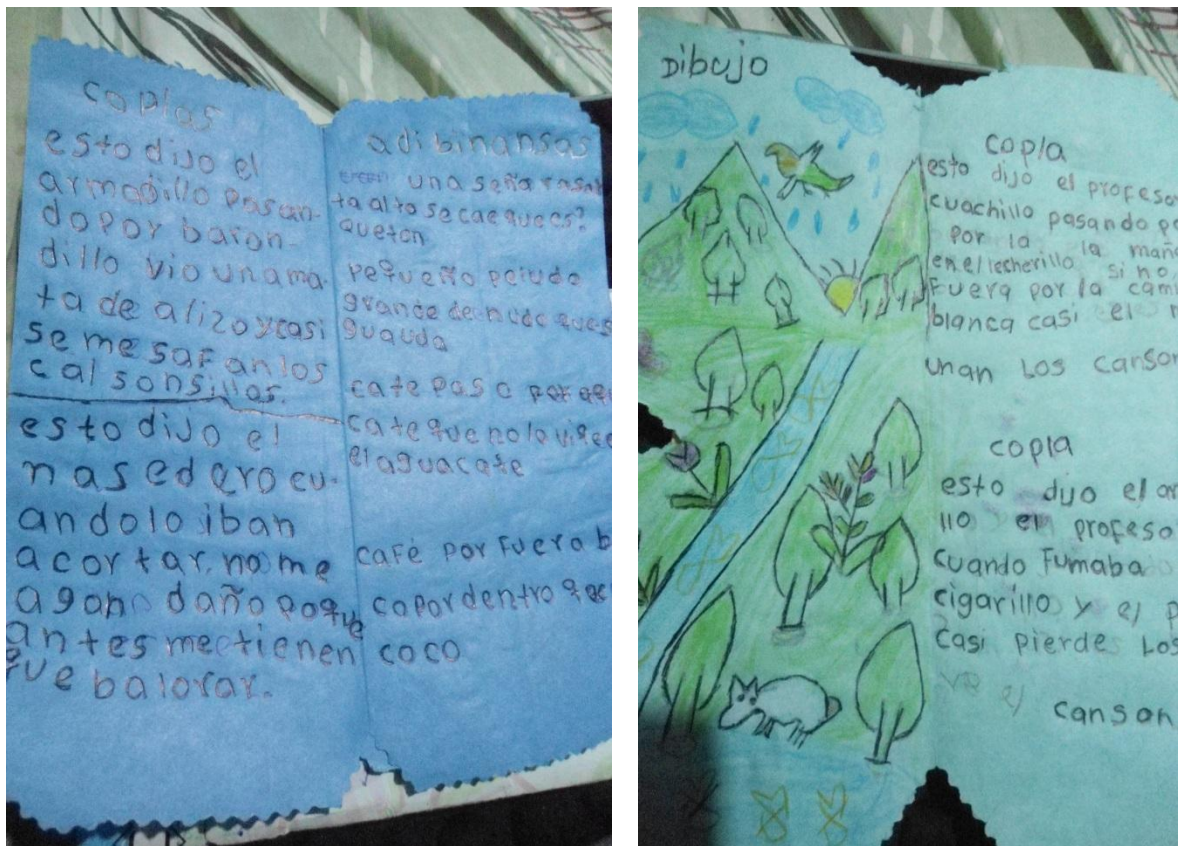 coplas
esto dijo el
armadillo pasan-
do por baran-
dillo vio una ma-
ta de alizo y casi
se me safan los
calsonsillos.
esto dijo el
nasedero cu-
ando lo iban
acortar, no me
agan daño poque
antes me tienen
que balorar.
adibinansas
una seña
ta alto se cae que es?
pequeño peludo
grande
guauda
cate paso por
cate que no lo
el aguacate
café por fuera b
co por dentro
coco
Dibujo
copla
esto dijo el profesor
cuachillo pasando
por la la maña
en el lecherillo si no
Fuera por la cami
blanca casi el
unan Los canson
copla
esto dijo el ar
llo el profeso
cuando Fumaba
cigarillo y el p
casi pierde Los
canson